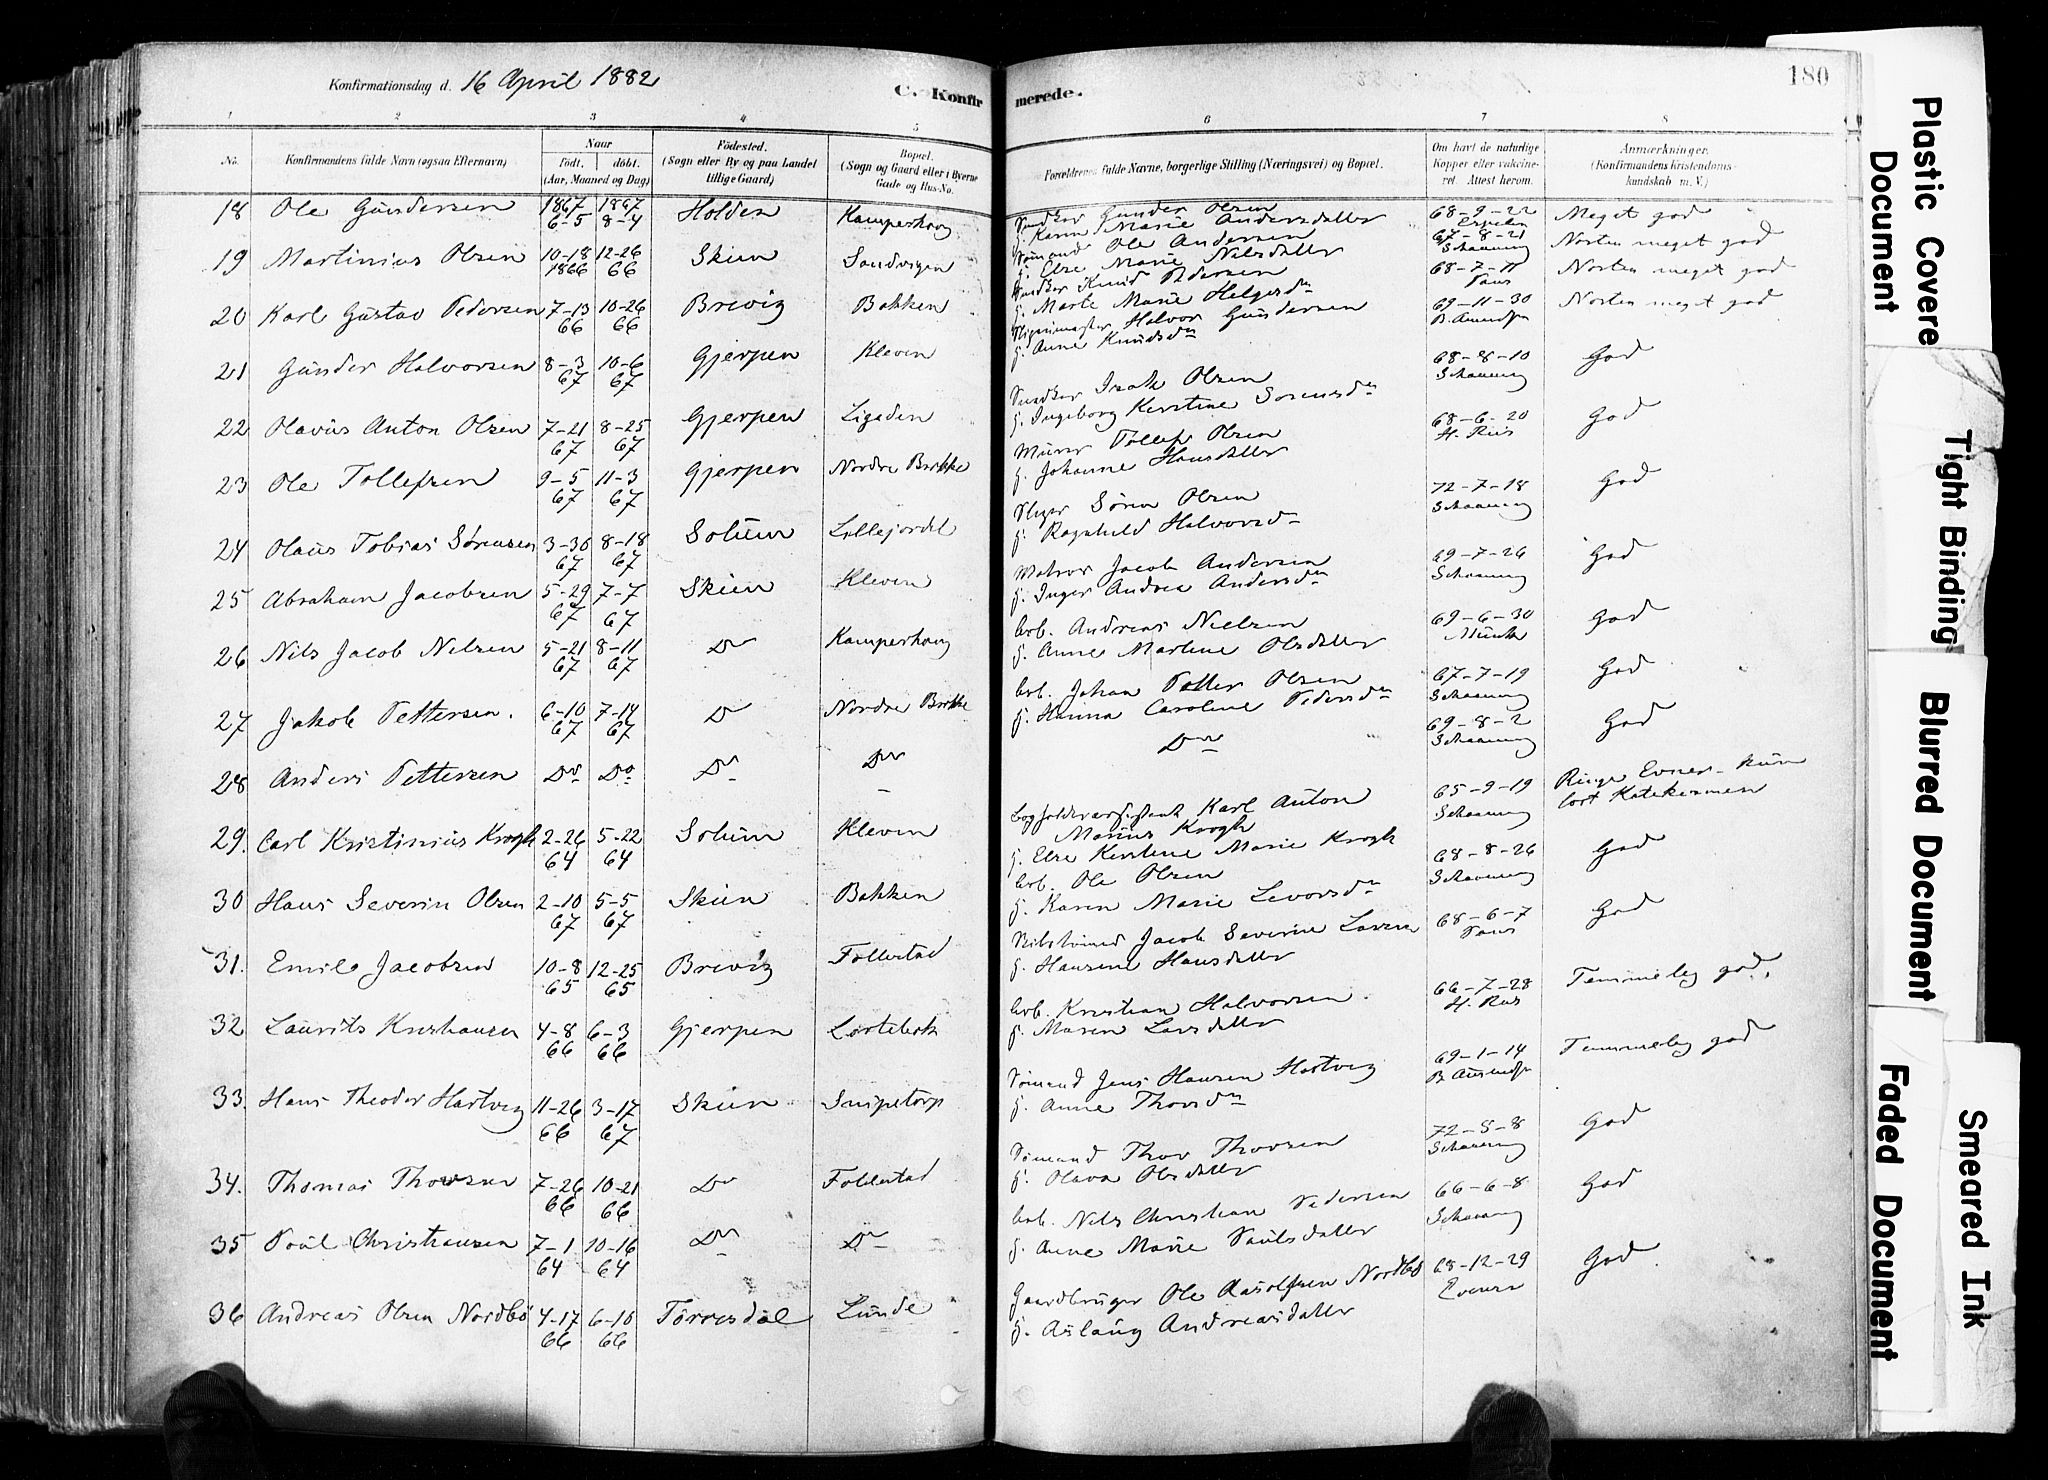 Konfirmationsdag d. 16 April 1882
C. Konfirmerede.
180
1 2 3 4 5 6 7 8
No. Konfirmandens fulde Navn (ogsaa Efternavn) Naar födt. döbt. (Aar, Maaned og Dag) Födested. (Sogn eller By og paa Landet tillige Gaard) Bopæl. (Sogn og Gaard eller i Byerne Gade og Hus-No. Forældrenes fulde Navne, borgerlige Stilling (Næringsvei) og Bopæl. Om havt de naturlige Kopper eller vaccineret. Attest herom. Anmærkninger. (Konfirmandens Kristendomskundskab m. V.)
18 Ole Gundersen 1867 6-5 1867 8-4 Holden Kamperhoug Gunder Olsen
g. Karen Marie Andersdatter 68-9-22 Meget god
19 Martinius Olsen 10-18 1866 12-26 66 Skien Sandvigen Sömand Ole Andersen
g. Else Marie Nilsdatter 67-8-21 Schaaning Norsten meget god
20 Karl Gustav Pedersen 7-13 66 10-26 66 Brevig Bakken Knud Pedersen
g. Marte Marie Helgesdr 68-7-11 Norsten meget god
21 Gunder Halvorsen 8-3 67 10-6 67 Gjerpen Kleven Halvor Gundersen
g. Anne Knudsdr 69-11-30 B. Amundsen Norsten meget god
22 Olavus Anton Olsen 7-21 67 8-25 67 Gjerpen Ligaden Isak Olsen
g. Ingeborg Kerstine Sorensdr 68-8-10 Schaaning God
23 Ole Tollefsen 9-5 67 11-3 67 Gjerpen Nordre Brekke Murer Tollef Olsen
g. Johanne Hansdatter 68-6-20 H. Riis God
24 Olaus Tobias Sörensen 3-30 67 8-18 67 Solum Lillejordet Sören Olsen
g. Ragnhild Halvorsd 72-7-18 Schaaning God
25 Abraham Jacobsen 5-29 67 7-7 67 Skien Kleven Matros Jacob Andersen
g. Inger Andrea Andersdr 69-7-26 Schaaning God
26 Nils Jacob Nelsen 5-21 67 8-11 67 Do Kamperhoug Arb. Andreas Nielsen
g. Anne Martene Olsdatter 69-6-30 Munk God
27 Jakob Pettersen. 6-10 67 7-14 67 Do Nordre Brekke Arb. Johan Petter Olsen
g. Hanna Caroline Pedersdr 67-7-19 Schaaning God
28 Anders Pettersen Do Do Do Do Do 69-8-2 Schaaning God
29. Carl Kristinius Krogh 2-26 64 5-22 64 Solum Kleven Karl Anton
Marius Krogh
g. Else Kerstene Marie Krogh 65-9-19 Schaaning Ringe Evner - kun
lært Katekismen
30 Hans Severin Olsen 2-10 67 5-5 67 Skien Bakken Arb. Ole Olsen
g. Karen Marie Levorsdr 68-8-26 Schaaning God
31. Emil Jacobsen 10-8 65 12-25 65 Brevig Follestad Jacob Severin Larsen
g. Hansene Hansdatter 68-6-7 God
32 Laurits Kristiansen 4-8 66 6-3 66 Gjerpen Lortebek Arb. Kristian Halvorsen.
g. Maren Larsdatter 66-7-28 H. Riis Temmelig god.
33. Hans Theodor Hartvig 11-26 66 3-17 67 Skien Snipetorp Sömand Jens Hansen Hartvig
g. Anne Thorsdr 69-1-14 B. Amundsen Temmelig god
34. Thomas Thorsen 7-26 66 10-21 66 Do Follestad Sömand Thor Thorsen
g. Olava Olsdatter 72-5-8 Schaaning God
35 Poul Christiansen 7-1 64 10-16 64 Do Do Arb. Nils Christian Pedersen
g. Anne Marie Poulsdatter 66-6-8 Schaaning God
36 Andreas Olsen Nordbö 4-17 66 6-10 66 Törresdal Lunde Gaardbruger Ole Aasolfsen Nordbö
g. Aslaug Andreasdatter 68-12-29 God.
Plastic Covere Document
Tight Binding
Blurred Document
Faded Document
Smeared Ink